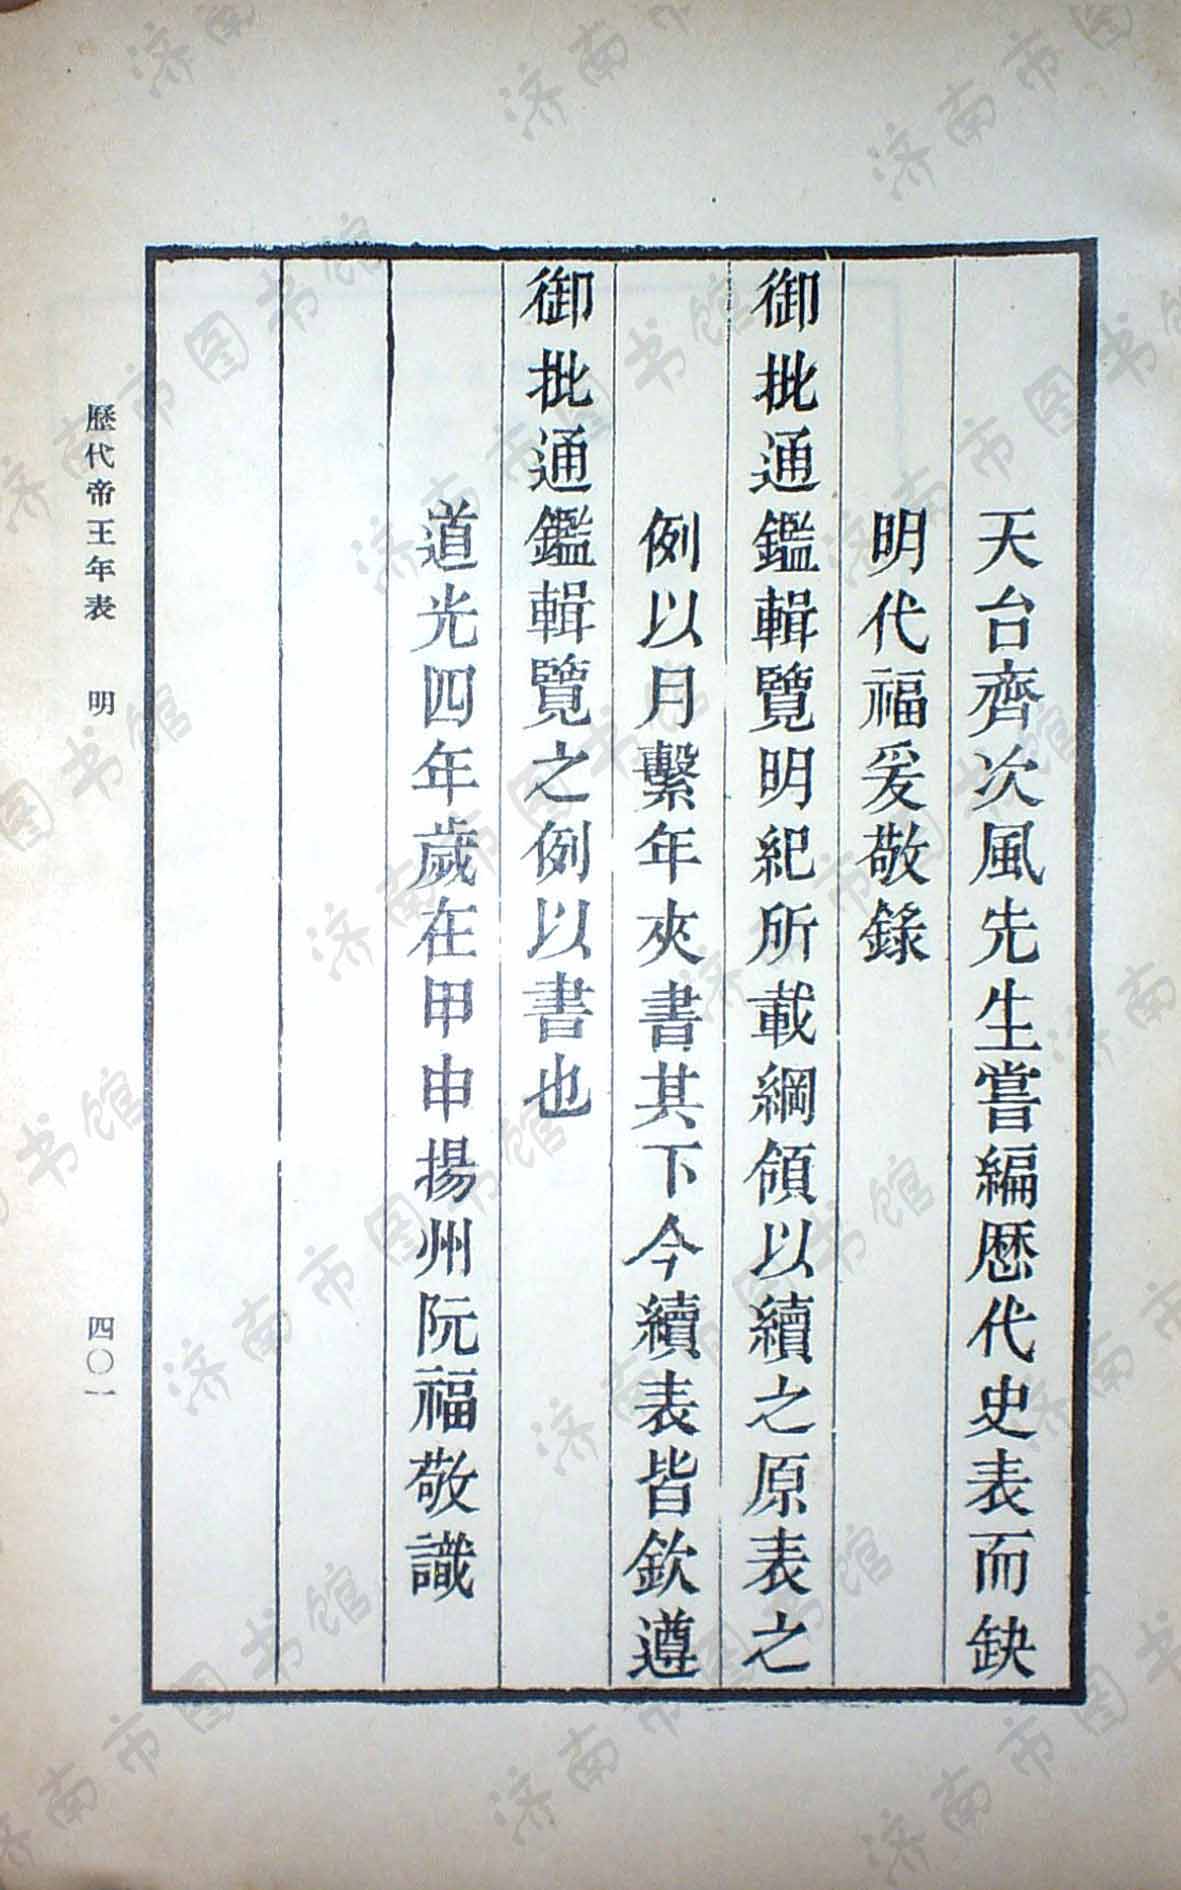 天台齊次風先生嘗編歷代史表而缺
明代福爰敬錄
御批通鑑輯覽明紀所載綱領以續之原表之
例以月繫年夾書其下今續表皆欽遵
御批通鑑輯覽之例以書也
道光四年歲在甲申揚州阮福敬識
歷代帝王年表 明
四〇一
济南市图书馆